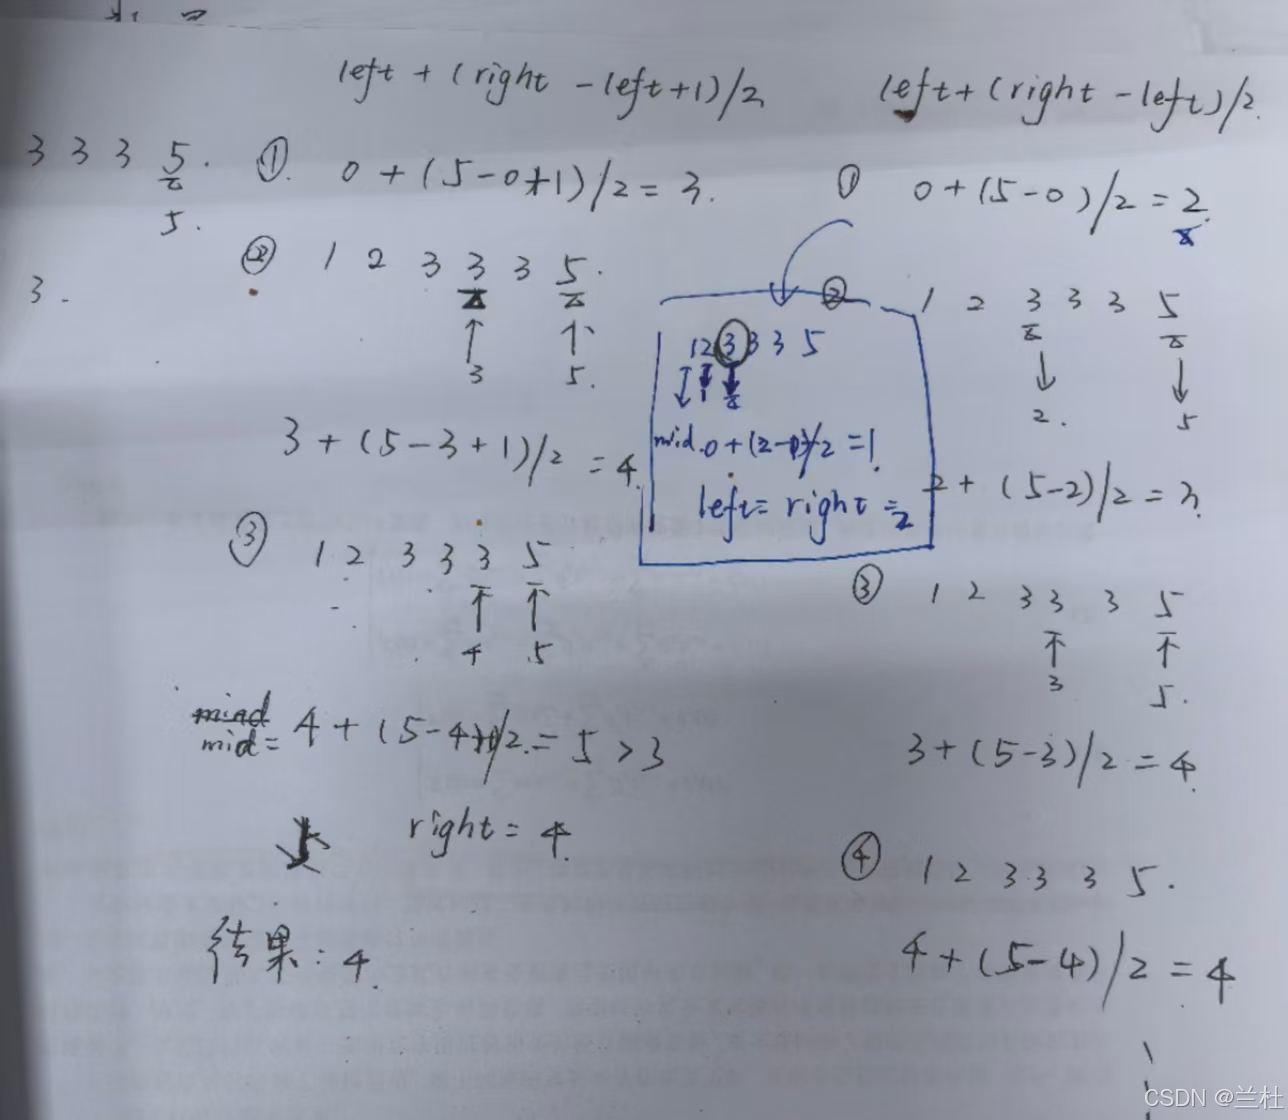 left + (right - left+1)/2
left+(right-left)/2.
3 3 3 5.
5.
3.
① 0 + (5-0+1)/2 = 3.
② 1 2 3 3 3 5.
3 5.
3 + (5-3+1)/2 = 4.
③ 1 2 3 3 3 5
4 5
mid= 4 + (5-4+1)/2.= 5 > 3
right = 4.
结果: 4.
1 2 3 3 3 5
1 2
mid.0+(2-0)/2 =1.
left= right =2
① 0+(5-0)/2 = 2.
② 1 2 3 3 3 5
2. 5
2+ (5-2)/2 = 3.
③ 1 2 3 3 3 5
3 5.
3+(5-3)/2 = 4.
④ 1 2 3 3 3 5.
4+(5-4)/2 = 4
CSDN @兰杜